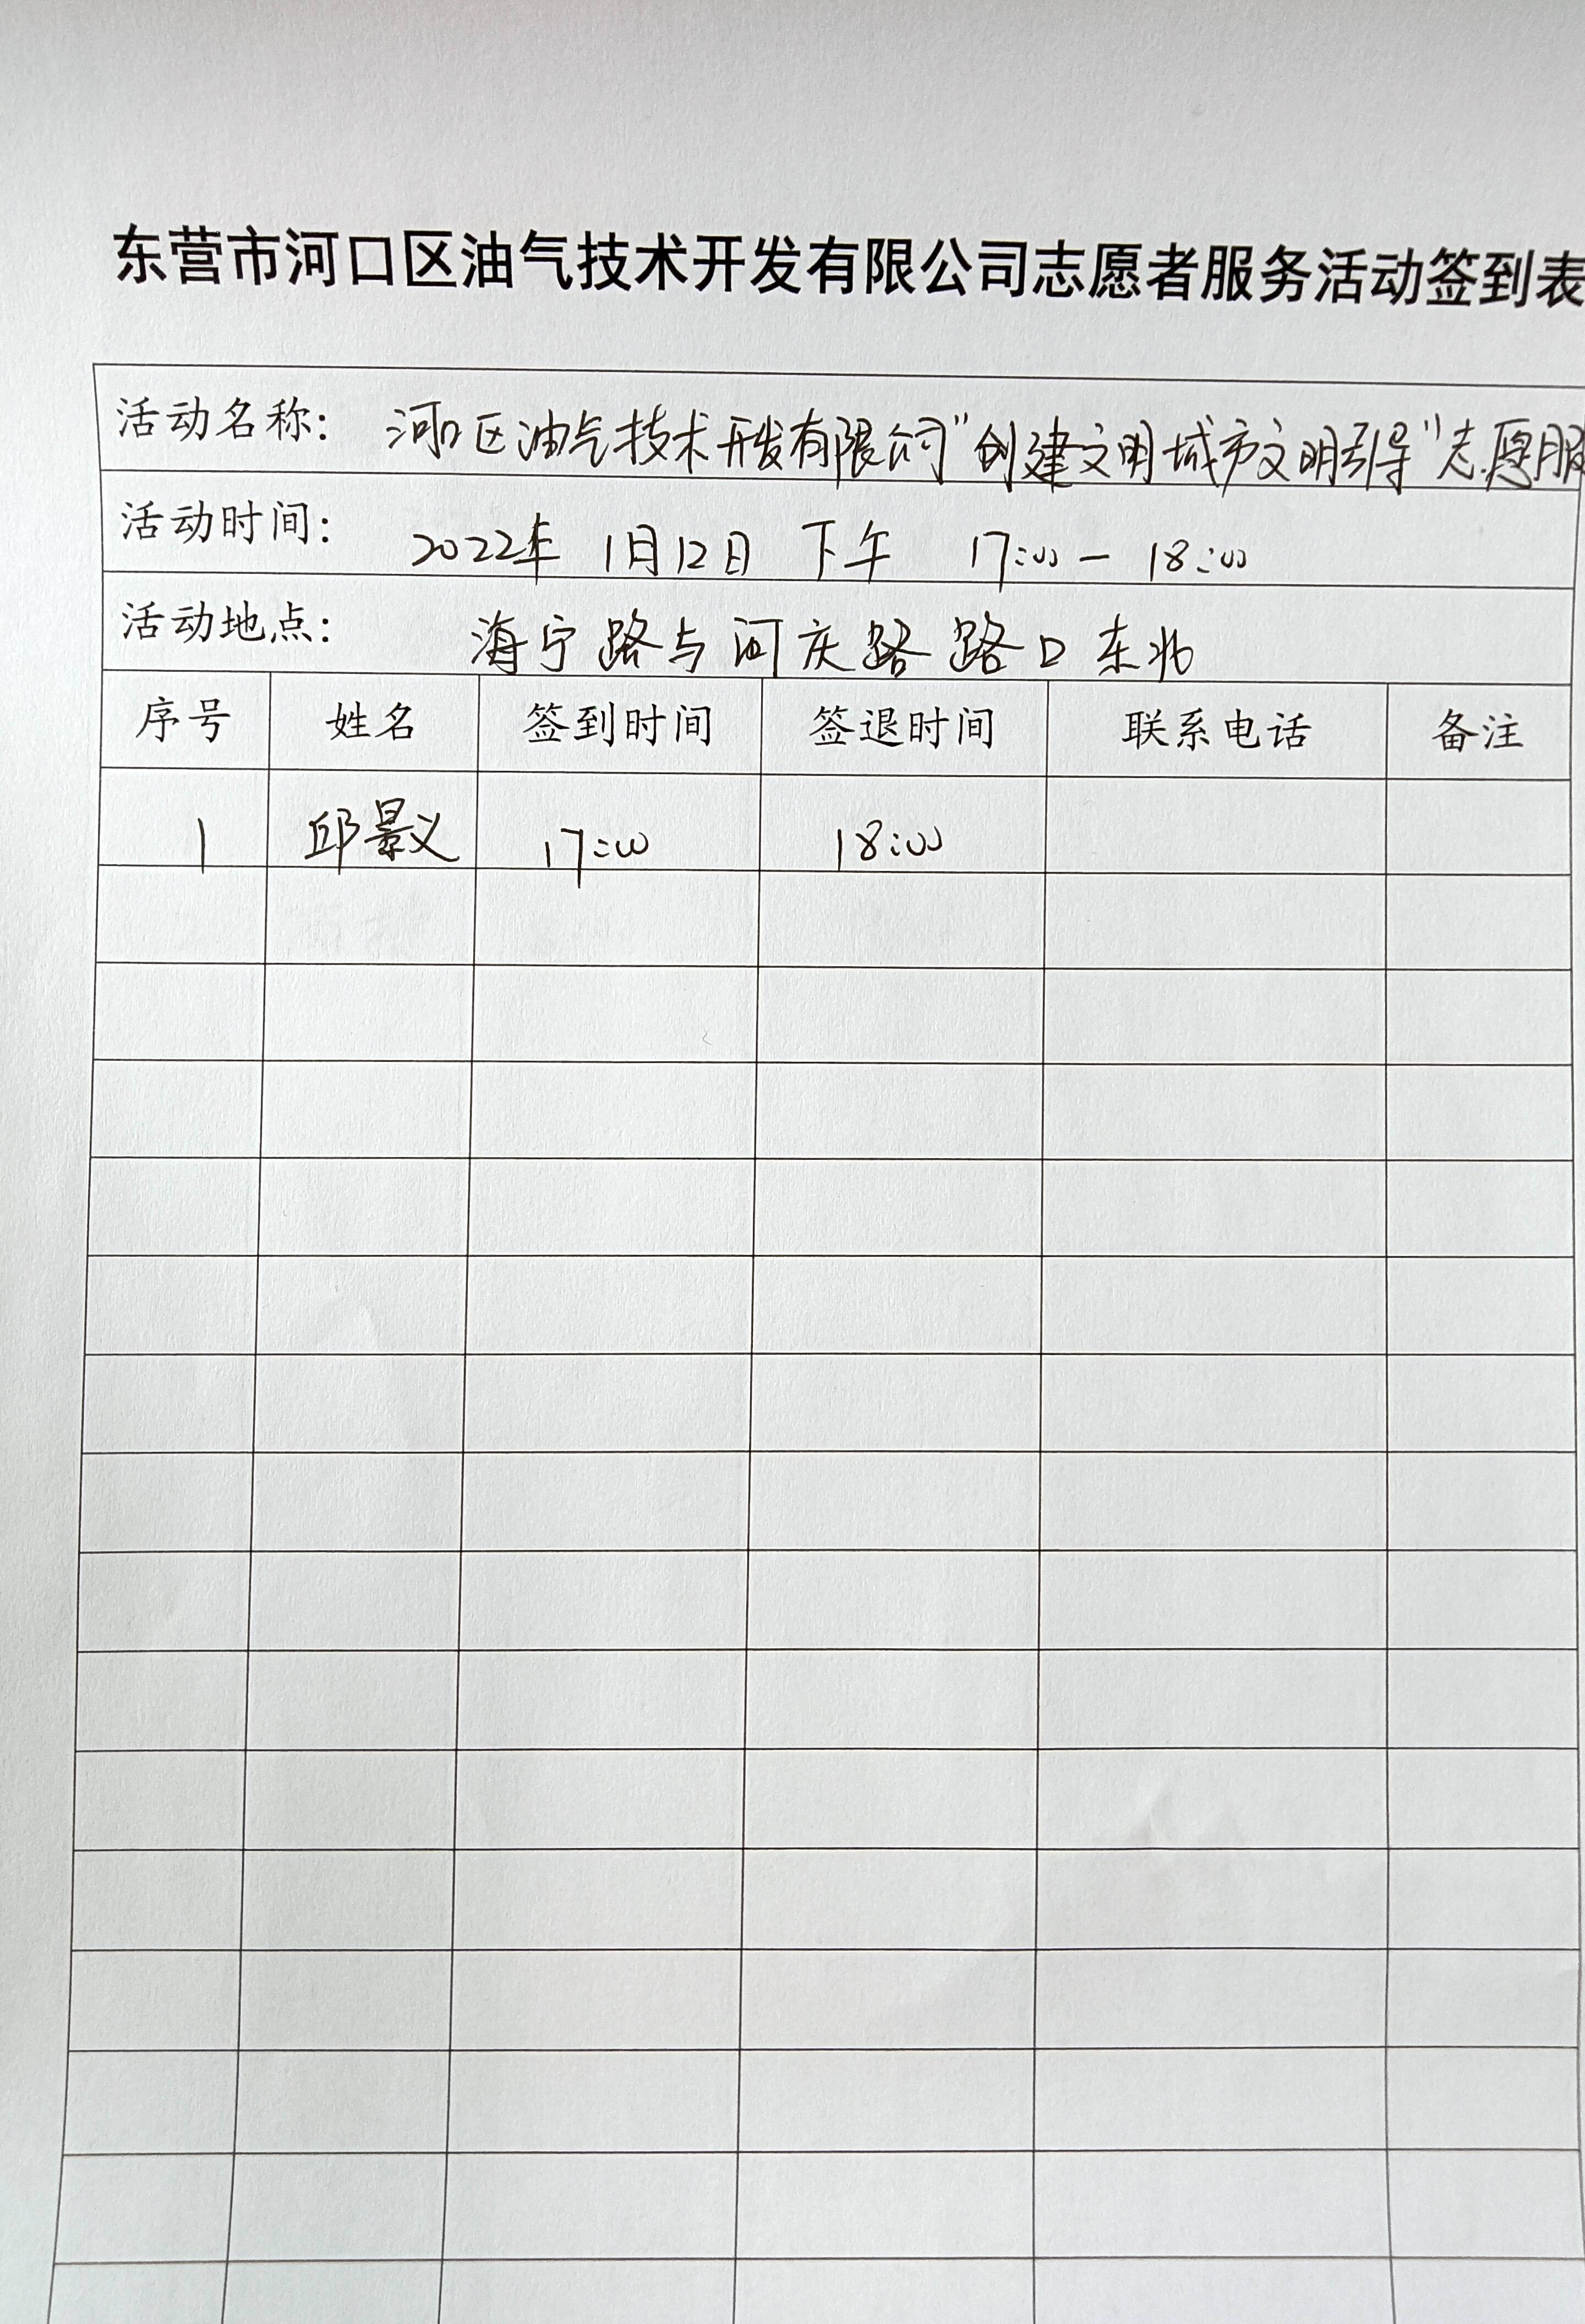 东营市河口区油气技术开发有限公司志愿者服务活动签到表
活动名称： 河口区油气技术开发有限公司"创建文明城市文明引导"志愿服
活动时间： 2022年 1月12日 下午 17:00 — 18:00
活动地点： 海宁路与河庆路路口东北
序号 姓名 签到时间 签退时间 联系电话 备注
1 邱景义 17:00 18:00